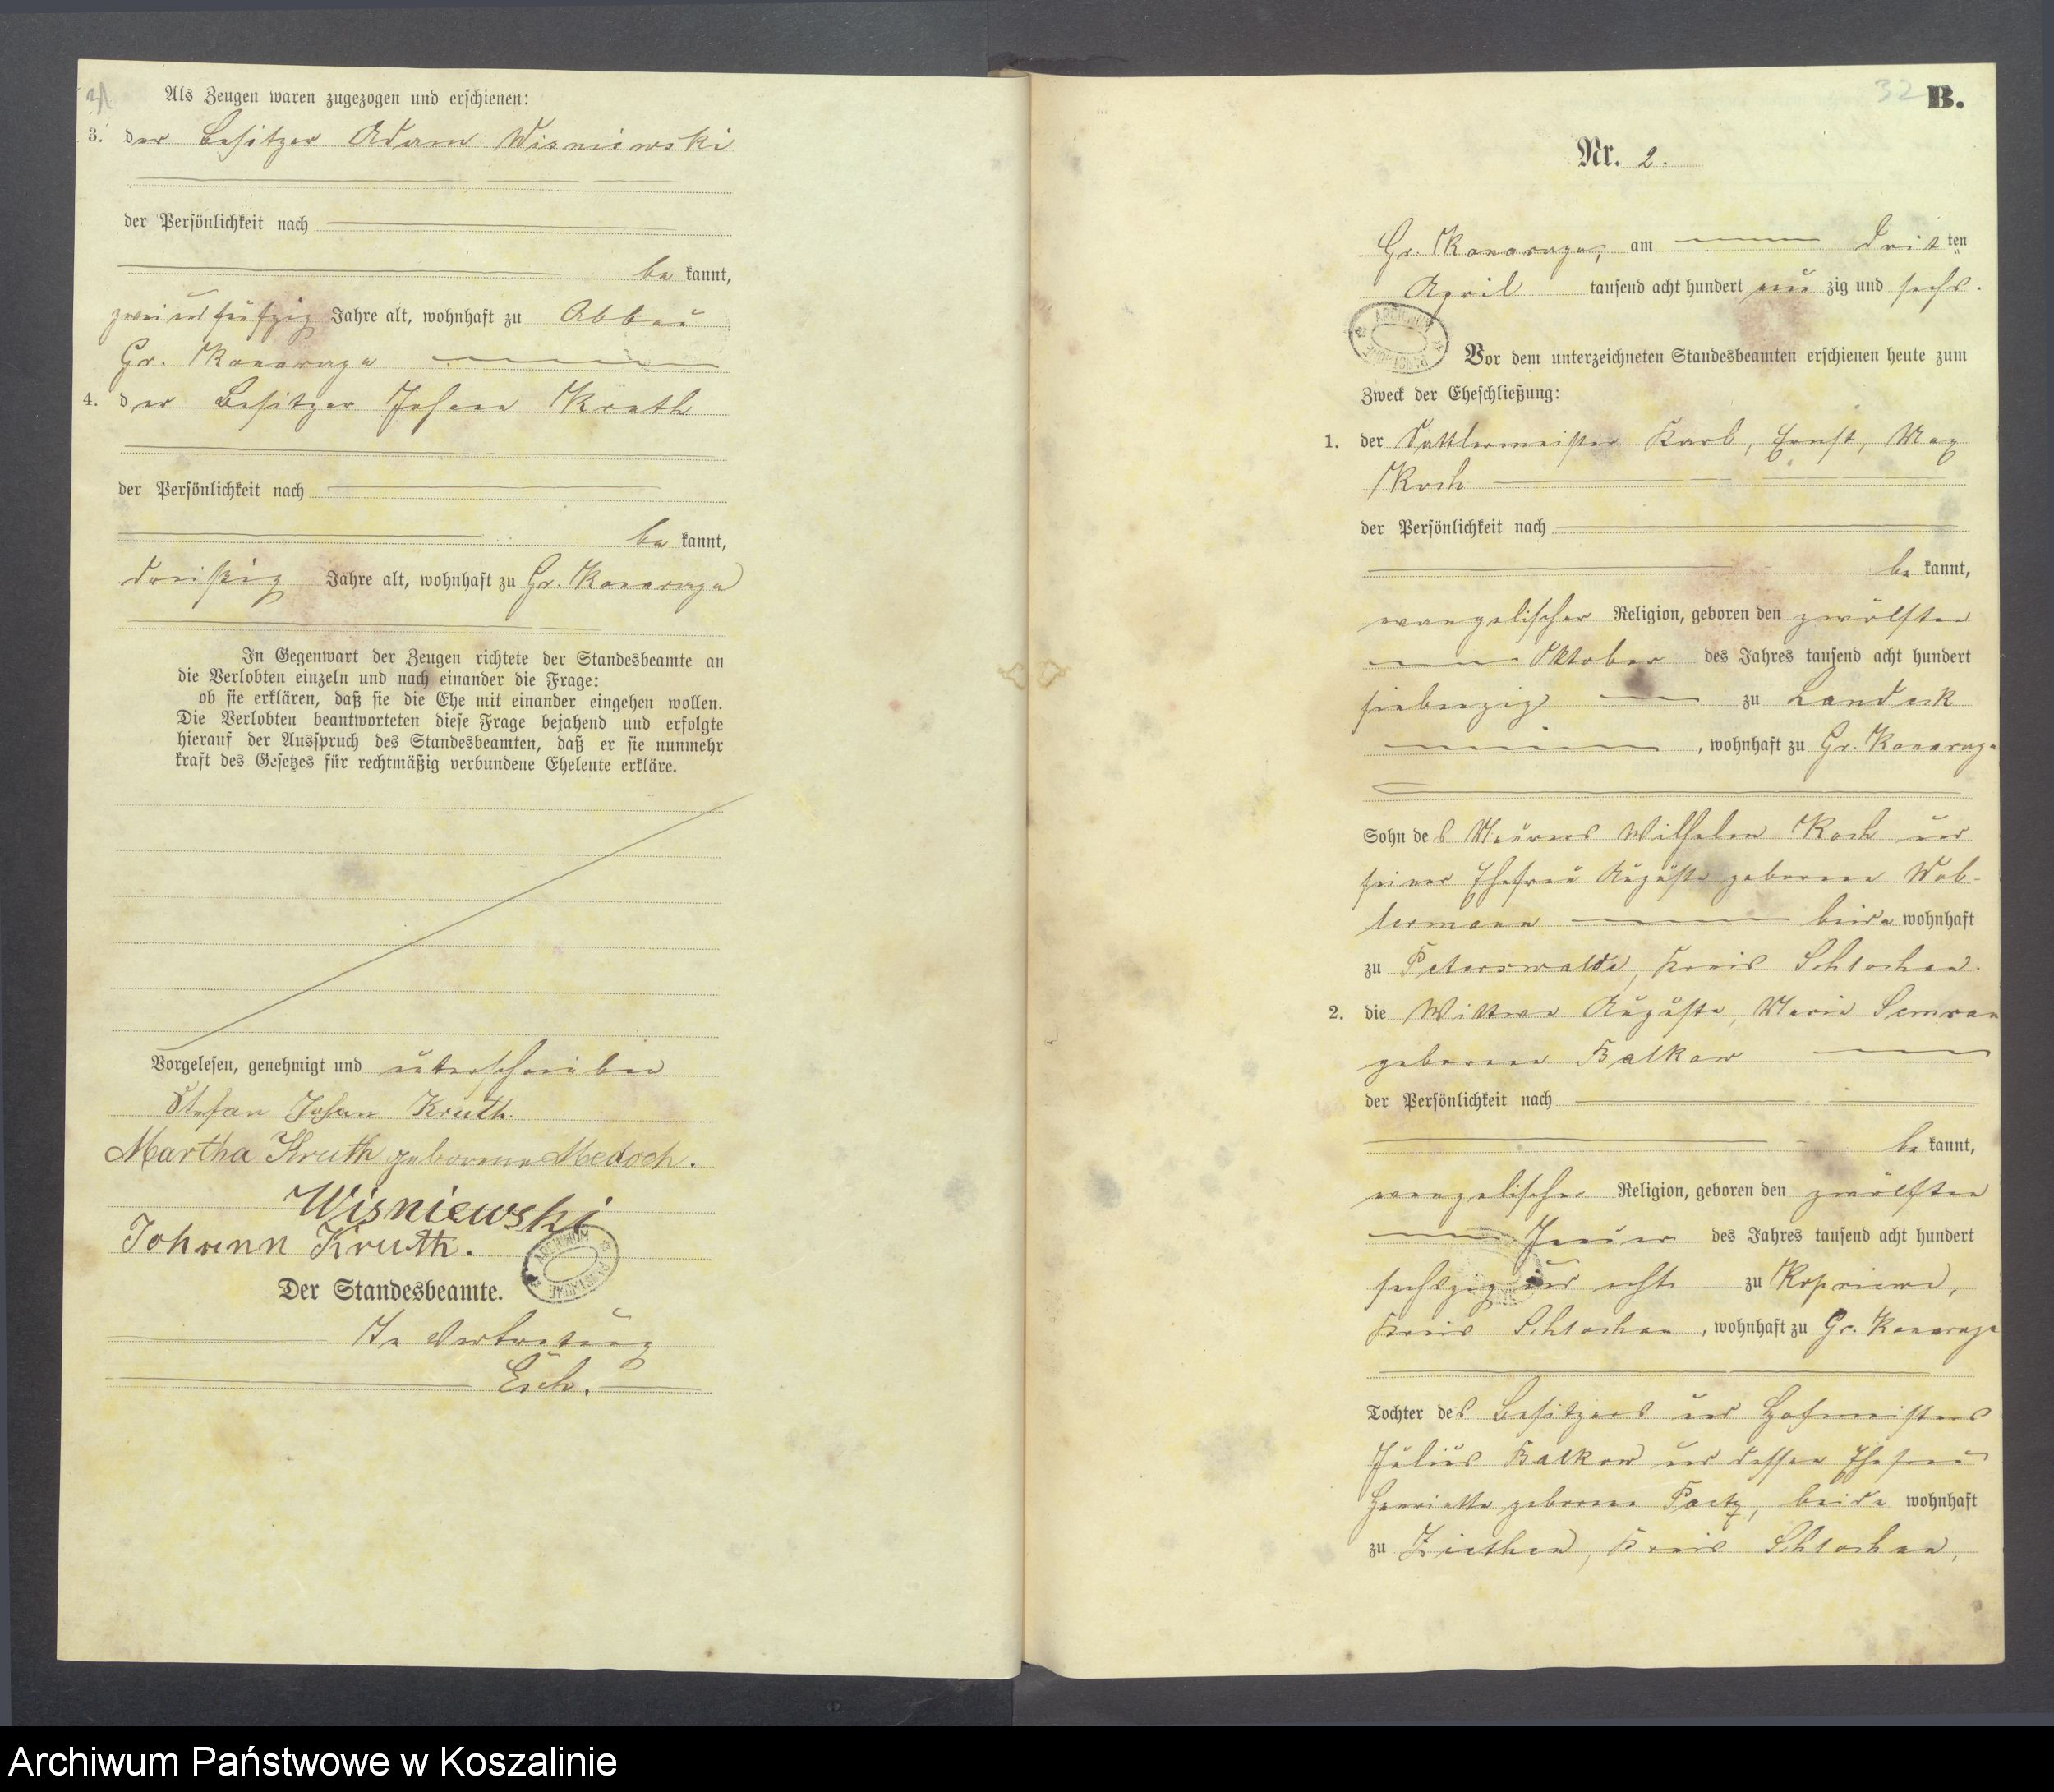 31
Als Zeugen waren zugezogen und erschienen:
3. der Besitzer Adam Wisniewski
der Persönlichkeit nach
be kannt,
zweiundfünfzig Jahre alt, wohnhaft zu Abbau
Gr. Konarczyn
4. der Besitzer Johann Kruth
der Persönlichkeit nach
be kannt,
dreißig Jahre alt, wohnhaft zu Gr. Konarczyn
In Gegenwart der Zeugen richtete der Standesbeamte an
die Verlobten einzeln und nach einander die Frage:
ob sie erklären, daß sie die Ehe mit einander eingehen wollen.
Die Verlobten beantworteten diese Frage bejahend und erfolgte
hierauf der Ausspruch des Standesbeamten, daß er sie nunmehr
kraft des Gesetzes für rechtmäßig verbundene Eheleute erkläre.
Vorgelesen, genehmigt und unterschrieben
Stefan Johann Kruth.
Martha Kruth geborene Medoch.
Wisniewski
Johann Kruth.
Der Standesbeamte.
In Vertretung
Esch.
32 B.
Nr. 2.
am dritten
April tausend acht hundert neunzig und sechs.
Vor dem unterzeichneten Standesbeamten erschienen heute zum
Zweck der Eheschließung:
1. der Sattlermeister Karl, Ernst, Max
Koch
der Persönlichkeit nach
be kannt,
evangelischer Religion, geboren den zwölften
Oktober des Jahres tausend acht hundert
siebenzig zu Landeck
, wohnhaft zu Gr.
Sohn des Maurers Wilhelm Koch und
seiner Ehefrau Auguste geborene Wol-
termann beide wohnhaft
zu Peterswalde, Kreis Schlochau.
2. die Wittwe Auguste, Marie Semrau
geborene Balkow
der Persönlichkeit nach
be kannt,
evangelischer Religion, geboren den zwölften
Januar des Jahres tausend acht hundert
sechszig und acht zu Kopriewe,
Kreis Schlochau, wohnhaft zu Gr.
Tochter des Besitzers und Hofmeisters
Julius Balkow und dessen Ehefrau
Henriette geborene Paetz, beide wohnhaft
zu Ziethen, Kreis Schlochau,
Archiwum Państwowe w Koszalinie